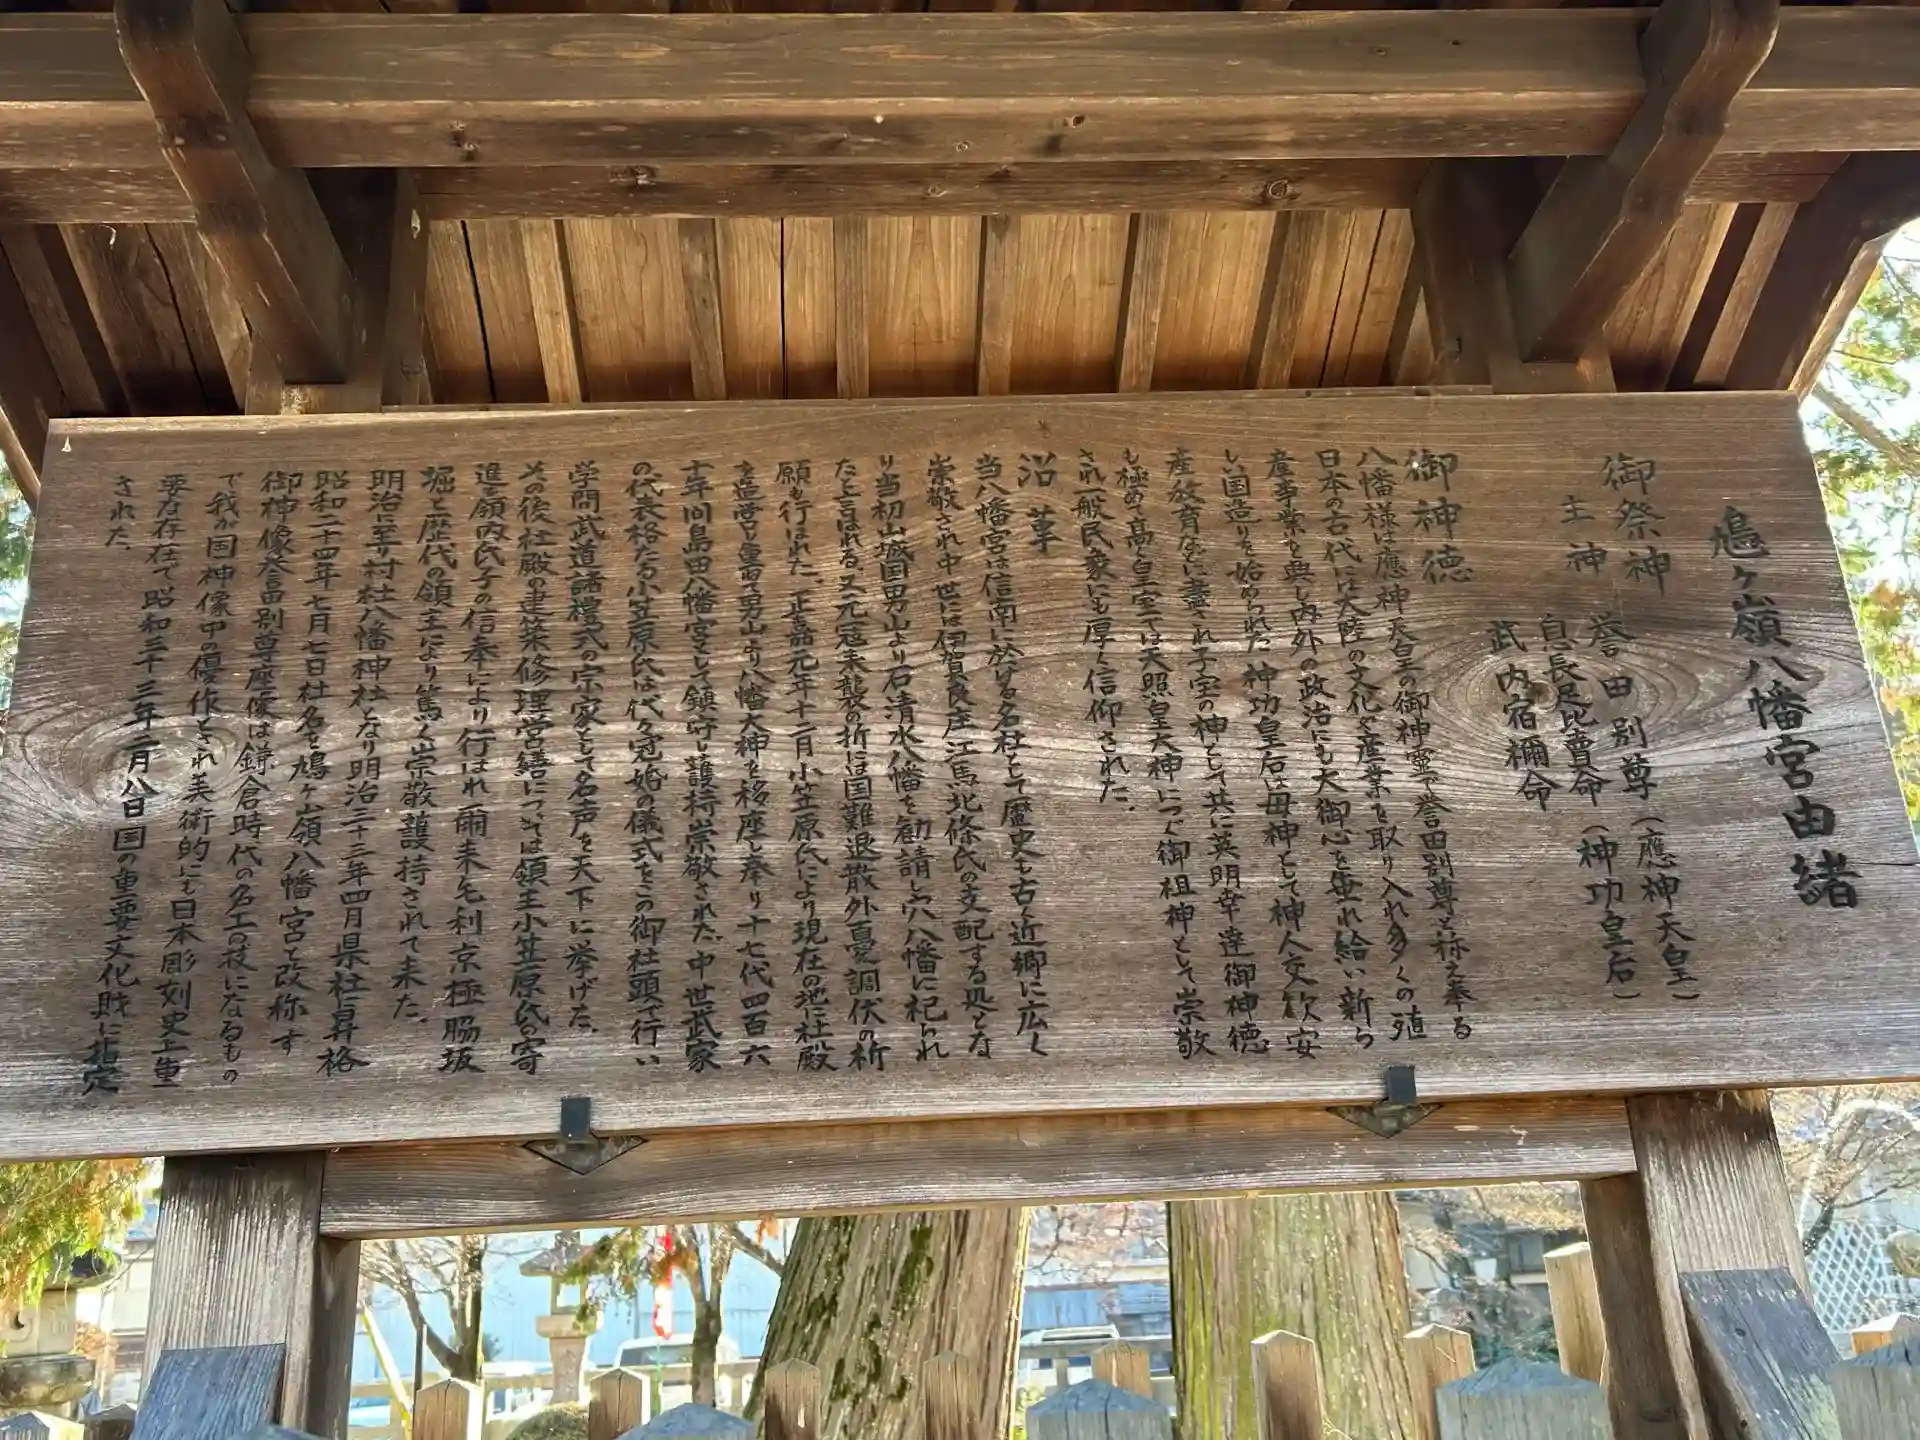 鳩ヶ嶺八幡宮由緒
御祭神
主神
誉田別尊(應神天皇)
息長足比賣命(神功皇后)
武内宿禰命
御神徳
八幡様は應神天皇の御神霊で誉田別尊と称え奉る
日本の古代には大陸の文化や産業を取り入れ多くの殖
産事業を興し内外の政治にも大御心を垂れ給い新ら
しい国造りを始められた神功皇后は母神として神人交歓安
産放育などに盡され子宝の神として共に英明幸達御神徳
も極めて高く皇室では天照皇大神につぐ御祖神として崇敬
され一般民衆にも厚く信仰された。
沿革
当八幡宮は信南に於ける名社として歴史も古く近郷に広く
崇敬され中世には伊賀良庄江馬北條氏の支配する処とな
り当初山城国男山より石清水八幡を勧請し穴八幡に祀られ
たと言はれる又元冦来襲の折には国難退散外憂調伏の祈
願も行はれた、正嘉元年十二月小笠原氏により現在の地に社殿
を造営し重ねて男山より八幡大神を移座し奉り十七代四百六
十年间島田八幡宮として鎮守し護持崇敬された、中世武家
の代表格たる小笠原氏は代々冠婚の儀式をこの御社頭で行い
学問武道諸禮式の宗家として名声を天下に挙げた。
その後社殿の建築修理営繕については領主小笠原氏の寄
進と領内氏子の信奉により行はれ爾来毛利京極脇坂
堀と歴代の領主により篤く崇敬護持されて来た。
明治に至り村社八幡神社となり明治二十三年四月県社に昇格
昭和二十四年七月七日社名を鳩ヶ嶺八幡宮と改称す
御神像誉田別尊座像は鎌倉時代の名工の技になるもの
で我が国神像中の優作とされ美術的にも日本彫刻史上重
要な存在で昭和三十三年二月八日国の重要文化財に指定
された。